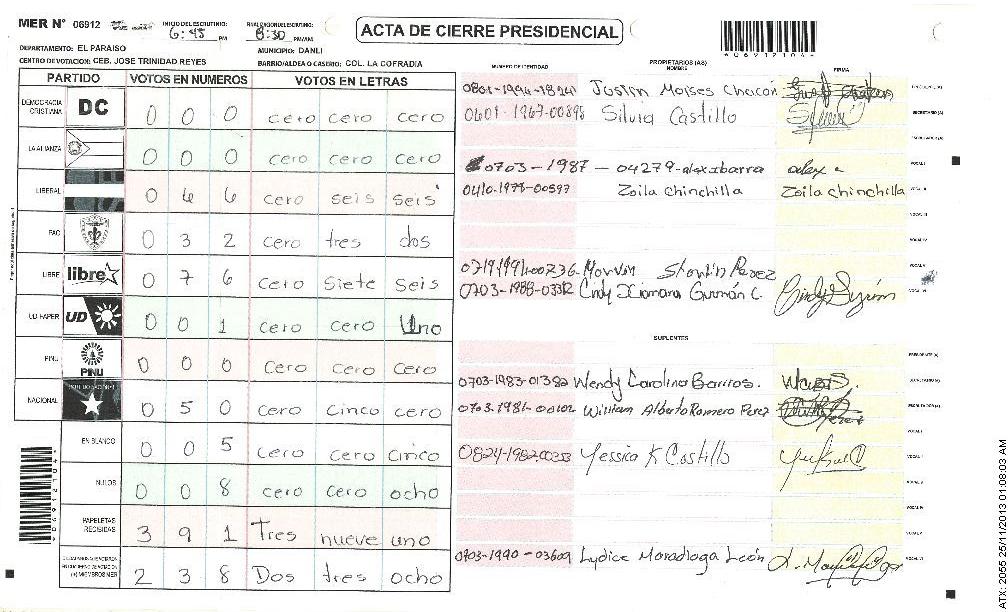 MER Nº 06912
INICIO DEL ESCRUTINIO: 6:45 PM
FINALIZACION DEL ESCRUTINIO: 8:30 PM/AM
ACTA DE CIERRE PRESIDENCIAL
DEPARTAMENTO: EL PARAISO
MUNICIPIO: DANLI
CENTRO DE VOTACION: CEB. JOSE TRINIDAD REYES
BARRIO/ALDEA O CASERIO: COL. LA COFRADIA
PARTIDO VOTOS EN NUMEROS VOTOS EN LETRAS
DEMOCRACIA CRISTIANA DC 0 0 0 cero cero cero
LA ALIANZA 0 0 0 cero cero cero
LIBERAL 0 6 6 cero seis seis
PAC 0 3 2 cero tres dos
LIBRE libre 0 7 6 cero siete seis
UD FAPER UD 0 0 1 cero cero uno
PINU PINU 0 0 0 cero cero cero
NACIONAL 0 5 0 cero cinco cero
EN BLANCO 0 0 5 cero cero cinco
NULOS 0 0 8 cero cero ocho
PAPELETAS RECIBIDAS 3 9 1 Tres nueve uno
(+) MIEMBROS MER 2 3 8 Dos tres ocho
NUMERO DE IDENTIDAD
PROPIETARIOS (AS)
NOMBRE
FIRMA
0801-1994-18241 Justin Moises Chacón
PRESIDENTE (A)
0601-1967-00895 Silvia Castillo
SECRETARIO (A)
ESCRUTADOR (A)
0703-1987-04279-alex ibarra alex
VOCAL I
0410-1978-00597 Zoila Chinchilla Zoila chinchilla
VOCAL II
VOCAL III
VOCAL IV
Marvin Perez
VOCAL V
0703-1988-03312 Cindy Xiomara Guzmán C.
VOCAL VI
SUPLENTES
PRESIDENTE (A)
0703-1983-01382 Wendy Carolina Barrios.
SECRETARIO (A)
0703-1981-00102 William Alberto Romero Perez
ESCRUTADOR (A)
VOCAL I
0824-1982-00353 Yessica K Castillo
VOCAL II
VOCAL IV
VOCAL V
0703-1990-03609 Lydice Maradiaga León
VOCAL VI
ATX: 2055 25/11/2013 01:08:03 AM